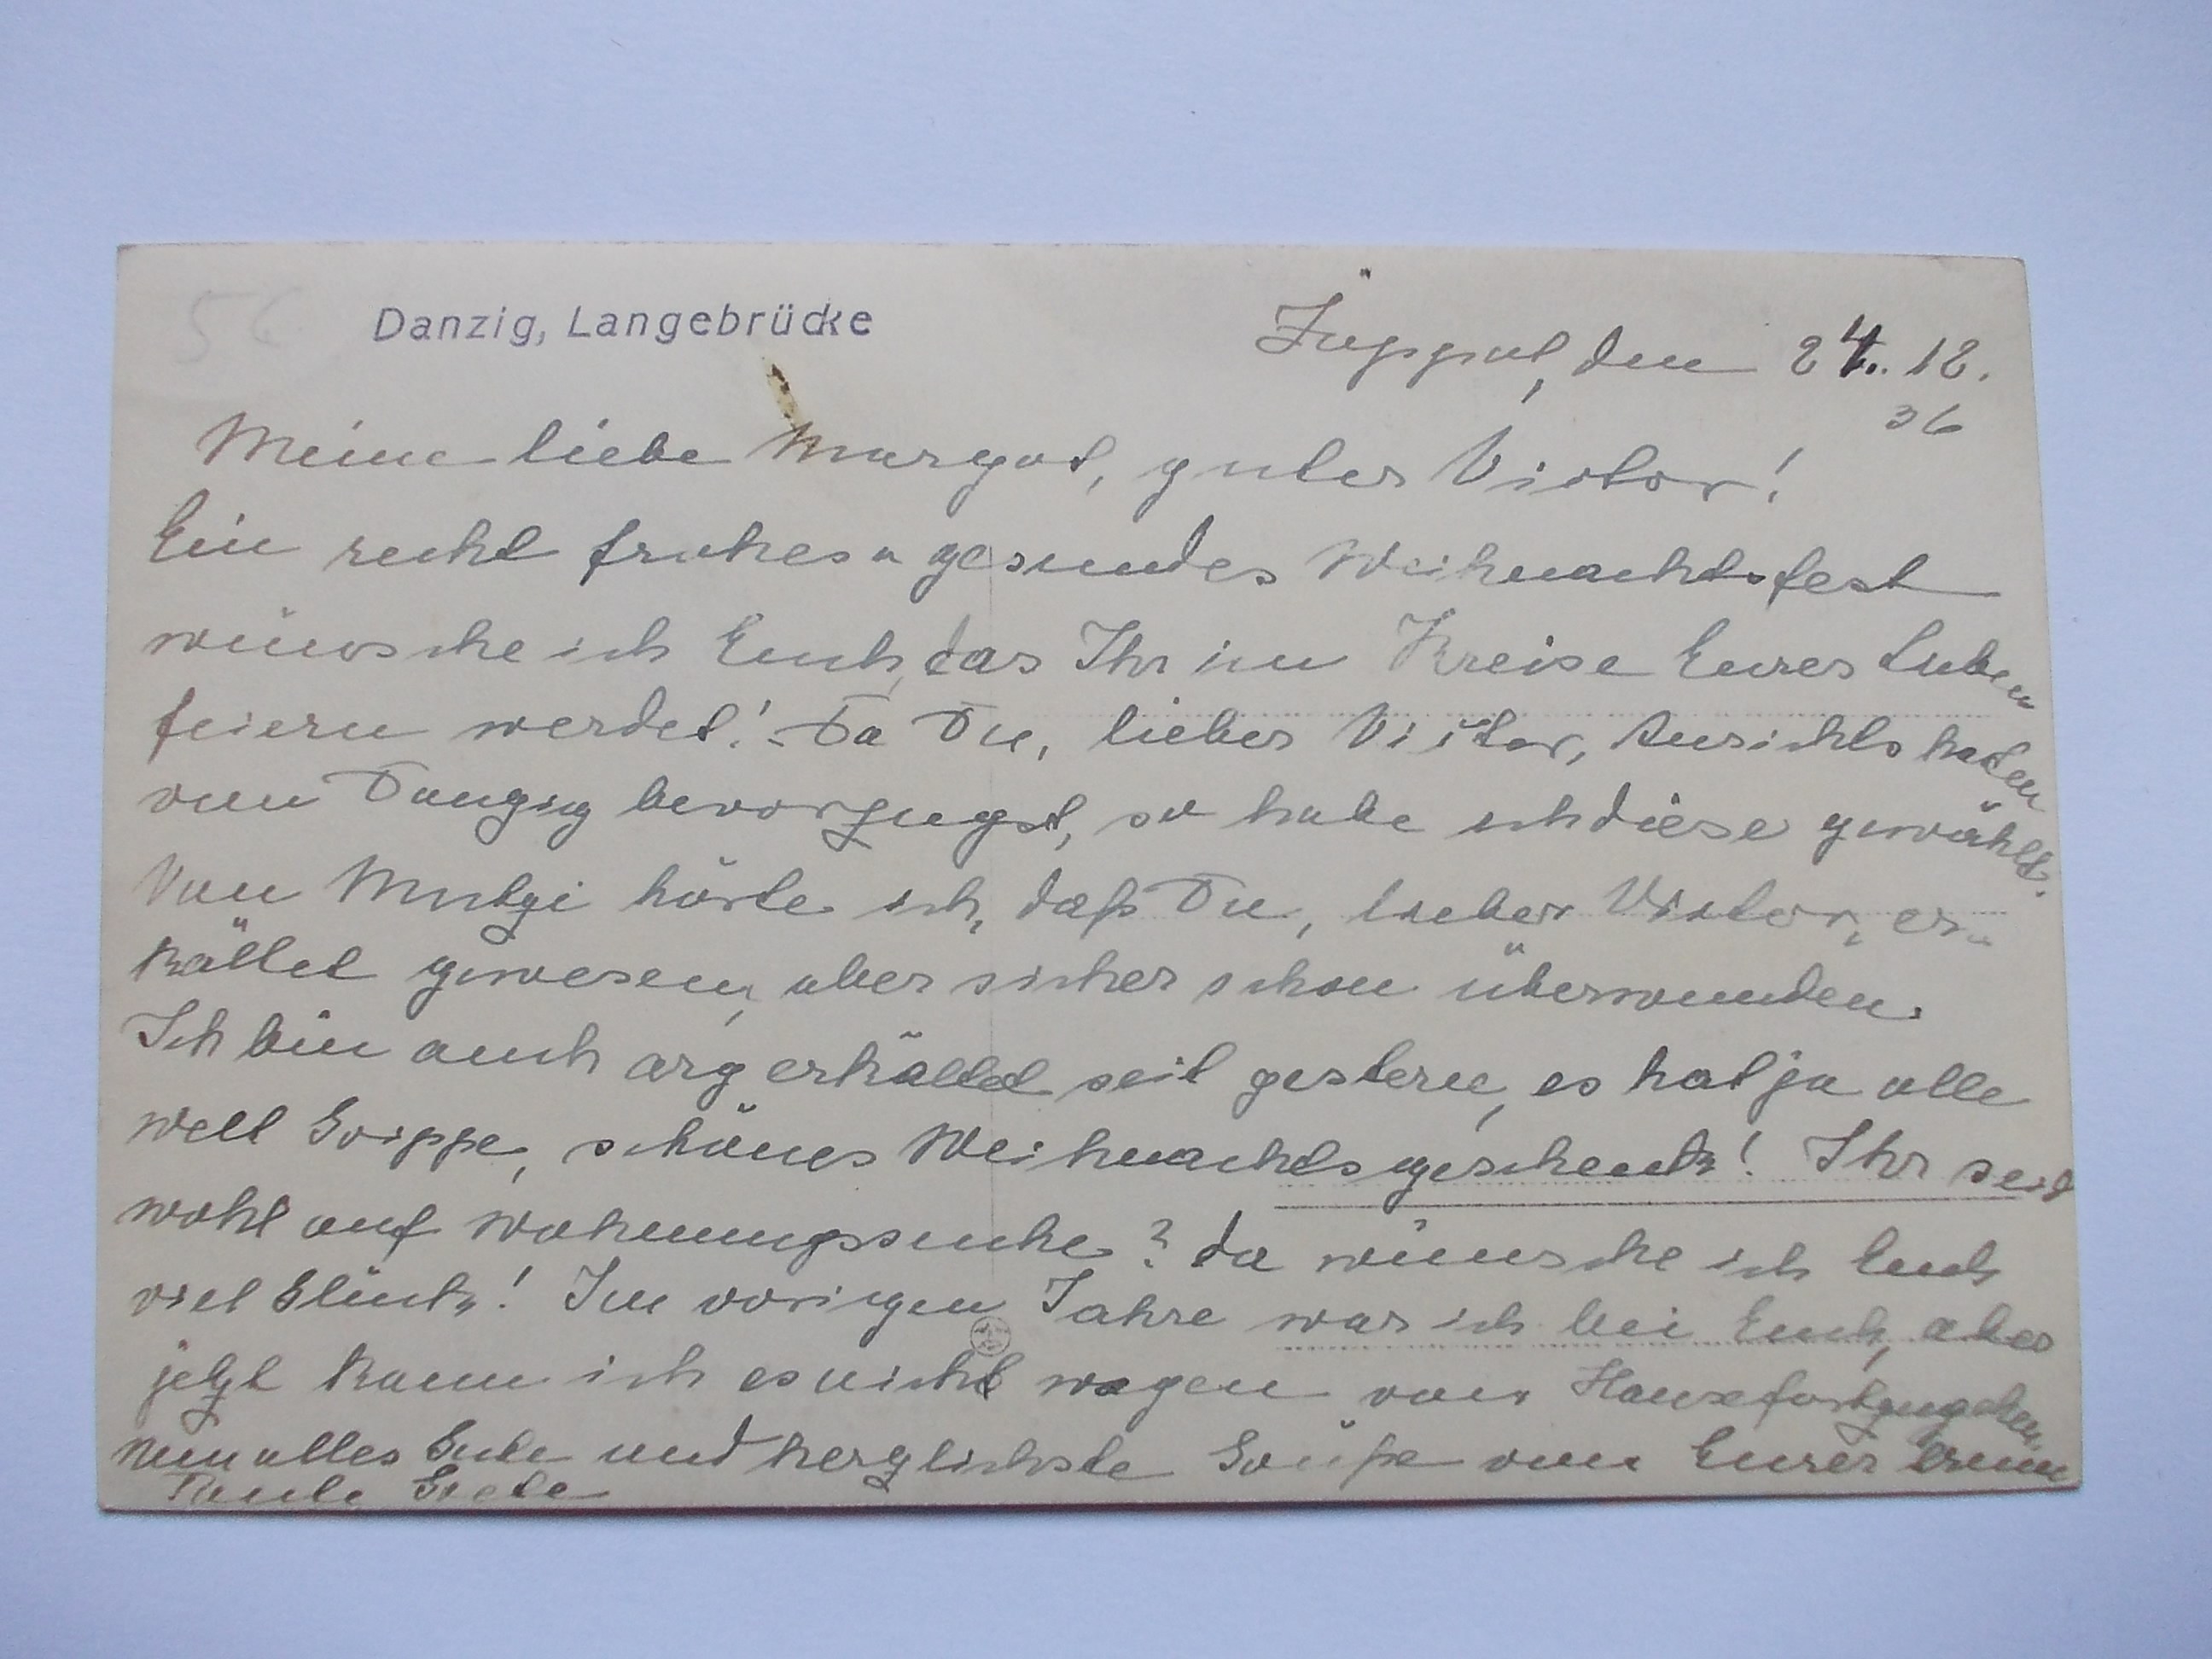 56
Danzig, Langebrücke
Zoppot, den 24. 12.
36
Meine liebe Margot, guter Victor!
Ein recht frohes u gesundes Weihnachtsfest
wünsche ich Euch, das Ihr im Kreise Eurer Lieben
feiern werdet! - Da Du, lieber Victor, Ansichtskarten
von Danzig bevorzugst, so habe ich diese gewählt.
Von Mutzi hörte ich, daß Du, lieber Victor, er-
kältet gewesen, aber sicher schon überwunden.
Ich bin auch arg erkältet seit gestern, es hat ja alle
Welt Grippe, schönes Weihnachtsgeschenk! Ihr seid
wohl auf Wohnungssuche? Da wünsche ich Euch
viel Glück! Im vorigen Jahre war ich bei Euch, aber
jetzt kann ich es nicht wagen von Hause fortzugehen.
Nun alles Gute und herzlichste Grüße von Eurer
Tante Grete